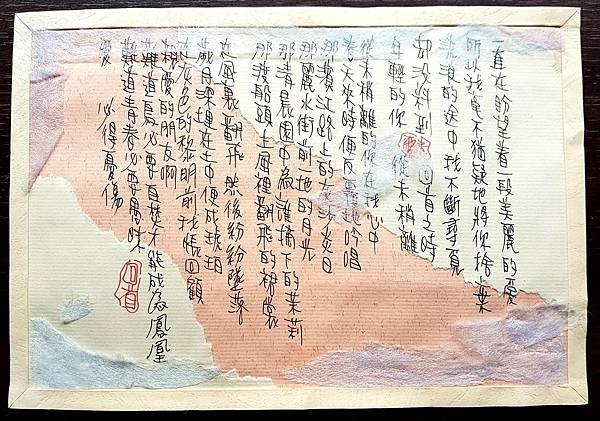 一直在盼望着一段美麗的愛
所以我毫不猶疑地將你捨棄
流浪的途中我不斷尋覓
卻沒料到 回首之時
年輕的你 從未稍離
從未稍離的你在我心中
春天來時便反覆地吟唱
那濱江路上的灰沙炎日
那麗水街前一地的月光
那清晨園中為誰摘下的茉莉
那渡船頭上風裡翻飛的裙裳
在風裏翻飛 然後紛紛墜落
歲月深埋在土中便成琥珀
在灰色的黎明前我悵然回顧
親愛的朋友啊
難道鳥必要自焚才能成為鳳凰
難道青春必要愚昧
愛 必得憂傷